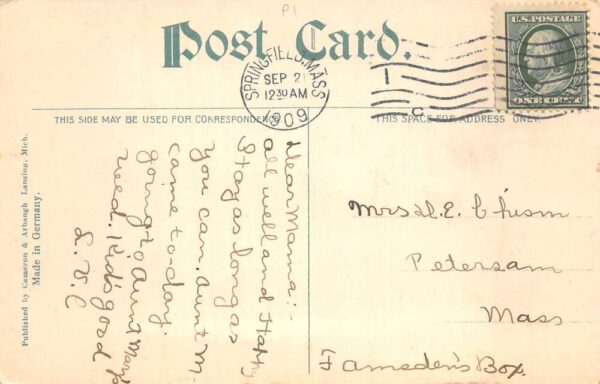 P1
Post Card.
U.S. POSTAGE
ONE CENT
SPRINGFIELD, MASS
SEP 2
12 30 AM
1909
1
C
THIS SIDE MAY BE USED FOR CORRESPONDENCE
THIS SPACE FOR ADDRESS ONLY.
Dear Mama:-
all well and Happy
Stay as long as
you can. Aunt M.
came to-day.
going to Aunt Mary's
need. Kid's good
L. V. C
Mrs H. E. Chism
Petersam
Mass
Ramsden's Box.
Published by Cameron & Arbaugh Lansing, Mich.
Made in Germany.